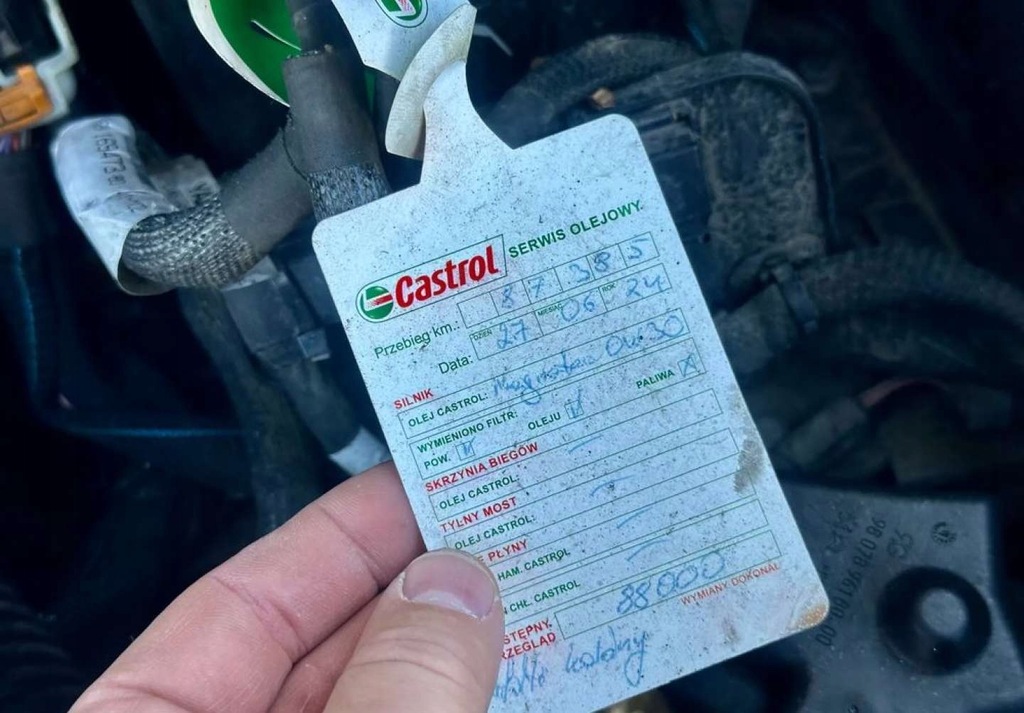 Castrol SERWIS OLEJOWY
Przebieg km.: 87 385
Data: DZIEŃ 27 MIESIĄC 06 ROK 24
SILNIK
OLEJ CASTROL: 0W30
WYMIENIONO FILTR:
POW. OLEJU PALIWA X
SKRZYNIA BIEGÓW
OLEJ CASTROL:
TYLNY MOST
OLEJ CASTROL:
PŁYNY
HAM. CASTROL
CHŁ. CASTROL
STĘPNY 88000
RZEGLĄD
WYMIANY DOKONAŁ